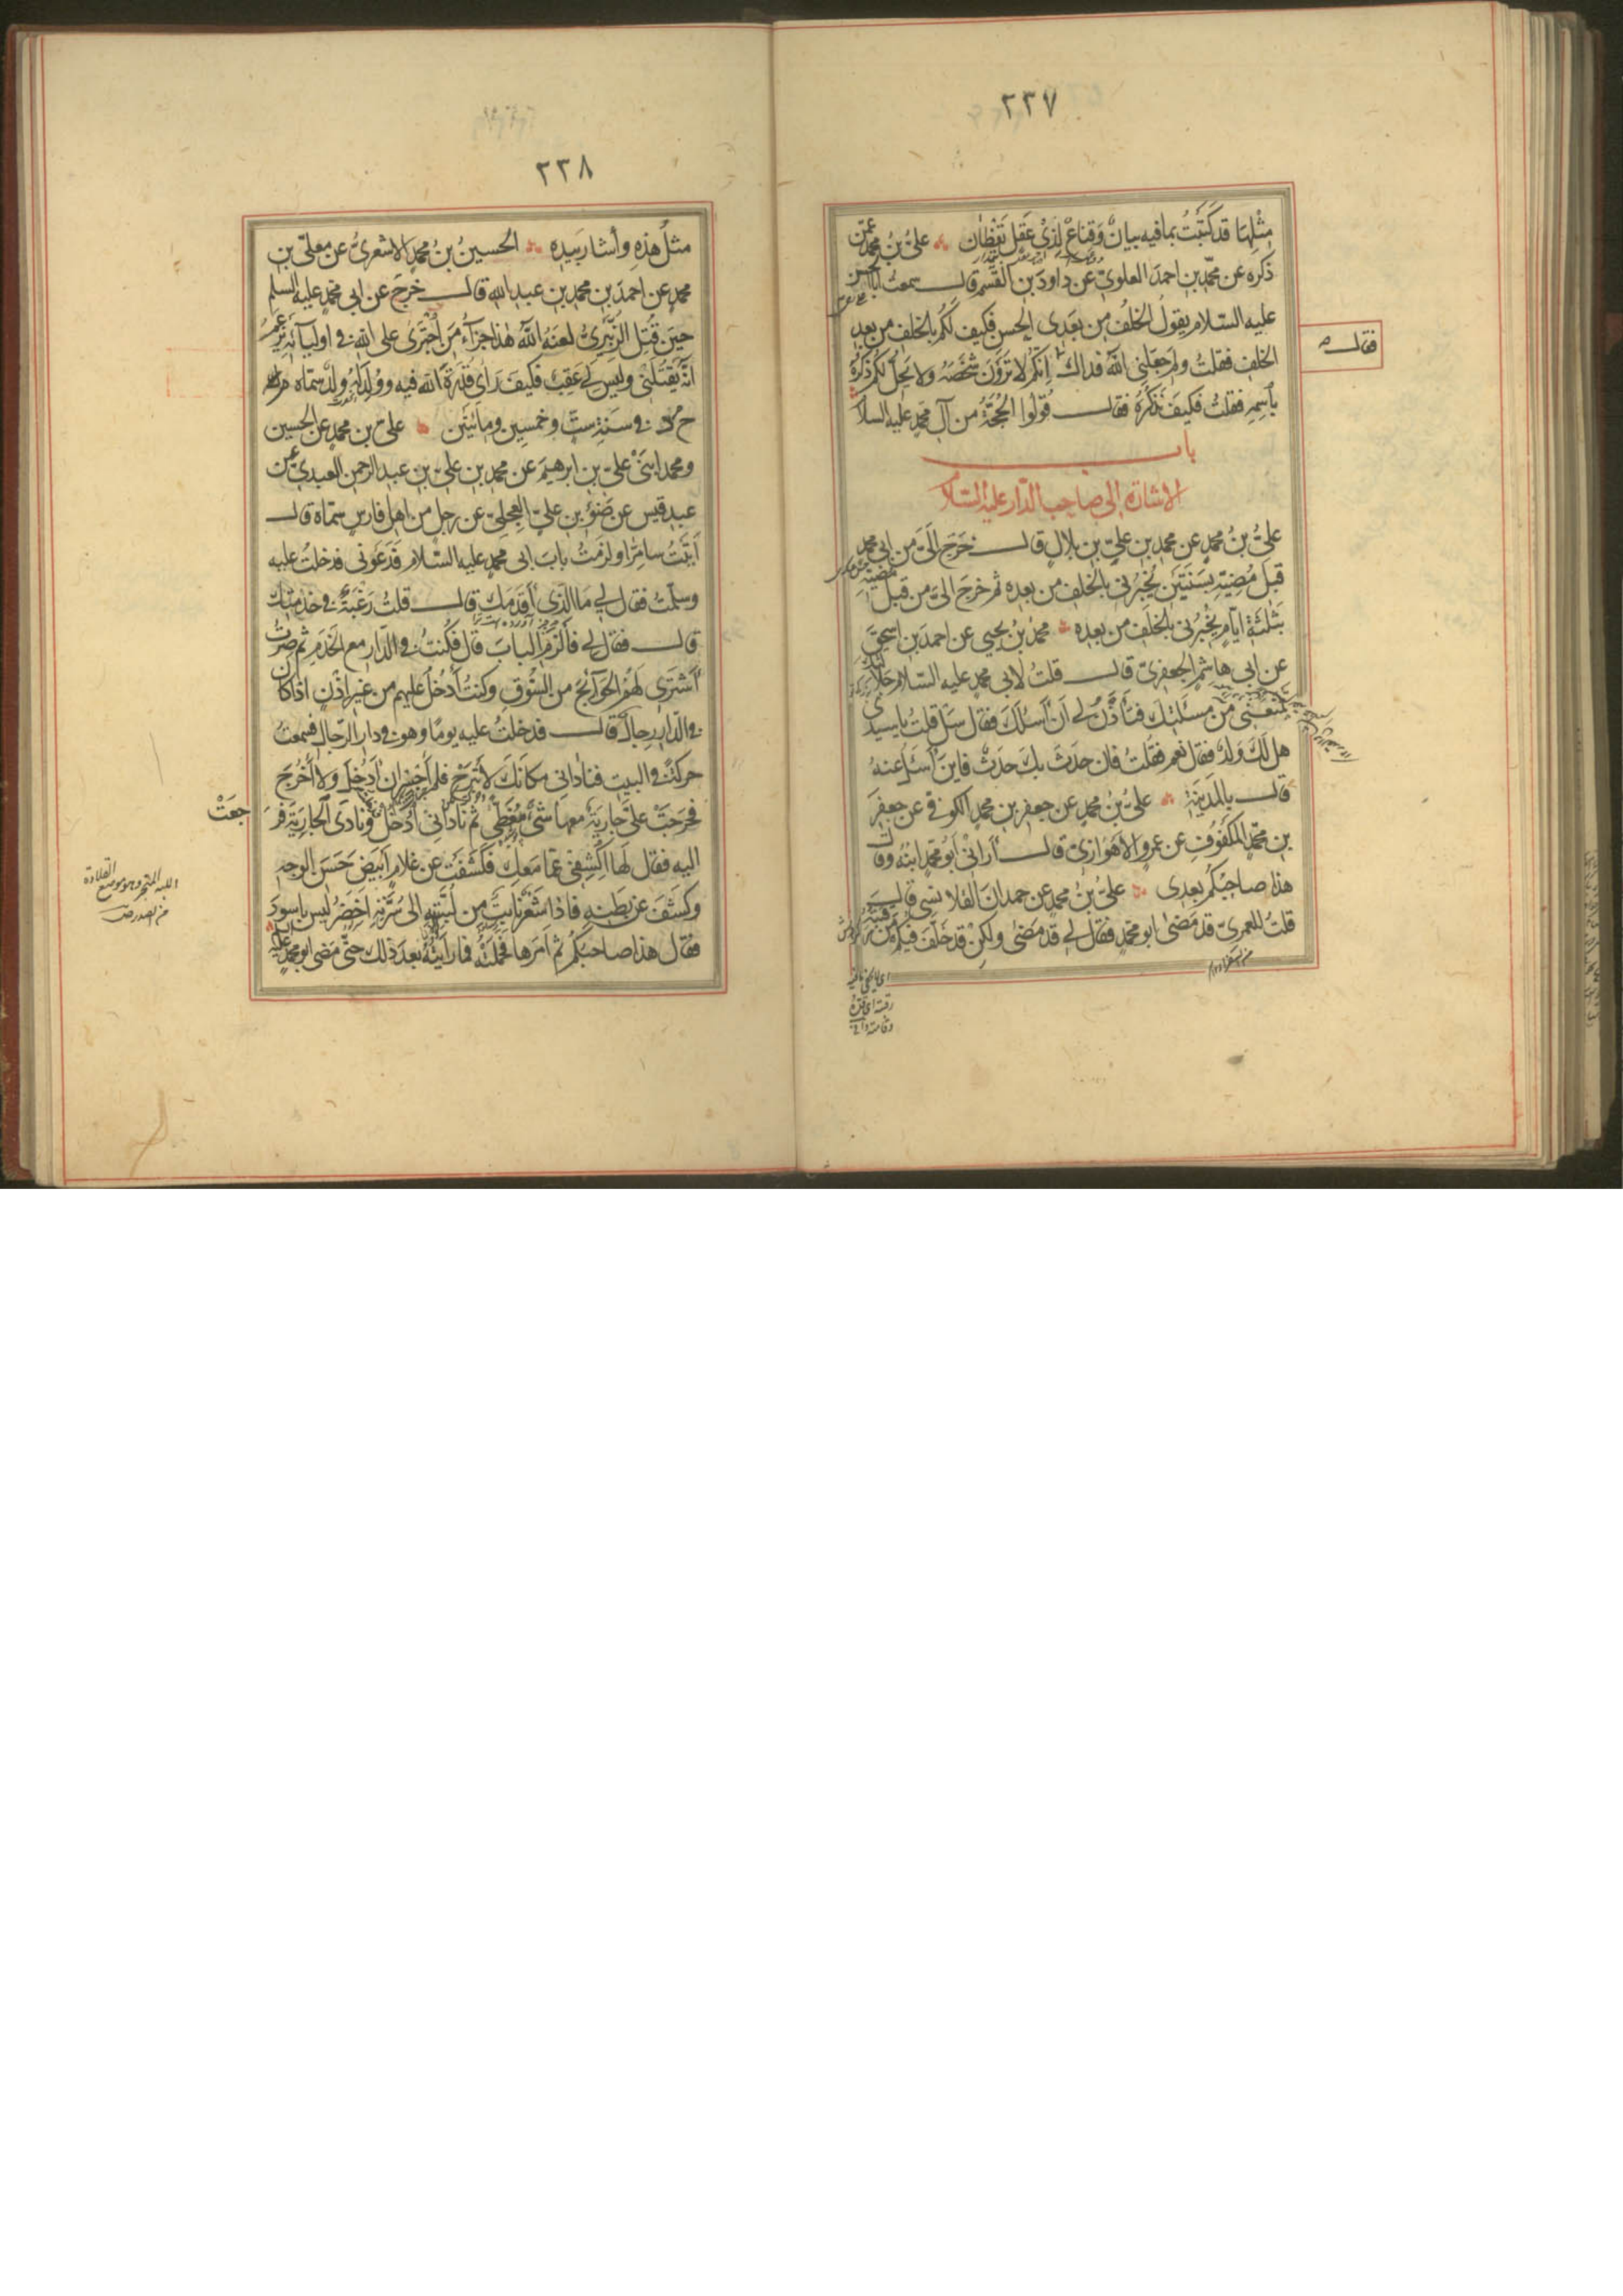 ٢٣٧
مِثْلِهَا قد كَتَبْتُ بما فيه بيانٌ وَقِناعٌ لِذِىْ عَقلٍ يَقْظَانَ علىُّ بنُ محمدٍ عمّن
ذَكره عن محمّدِ بنِ احمدَ العلوىّ عن داودَ بن القٰسم قالــ سمعت اباالحسن
عليه السّلام يقولُ الخَلفُ من بَعْدى الحسن فكيف لَكُم بالخلف من بعدِ
الخلفِ فقلتُ ولِمَ جَعلنى اللّٰهُ فداك
فقالــ
اِنّكُم لا تَرَوْنَ شَخْصَهُ ولا يَحِلُّ لكُم ذِكرُهُ
باسمِه فقلتُ فكيفَ نَذكُرُهُ فقالــ قُوْلُوا الحُجَّةُ من آلِ محمّدٍ عليه السلام
بابــ
الاشارة الى صاحب الدّار عليه السّلام
علىُّ بنُ محمدٍ عن محمدِ بنِ علىِّ بنِ بلالٍ قالــ خَرَجَ اِلَىَّ من ابى محمدٍ
قبل مُضِيّهِ بسَنَتَيْن يُخْبِرُنى بالخلف من بعده ثم خرجَ الىَّ من قبل مُضيّه
بثَلٰثَةِ ايّامٍ يُخْبِرُنى بالخَلَفِ من بعده محمدُ بنُ يحيى عن احمدَ بنِ اسحٰقَ
عن ابى هاشمٍ الجعفرىّ قالــ قلتُ لابى محمدٍ عليه السّلام جَلالتُكَ
تَمنَعُنى من مسئلتِكَ فتَأذَنُ لى اَنْ اَسئَلَكَ فقال سَلْ قلتُ يا سيدى
هل لَكَ وَلدٌ فقال نعم فقُلتُ فان حدَثَ بك حَدَثٌ فاين اَسئَلُ عنهُ
قالــ بالمَدينَةِ علىُّ بنُ محمدٍ عن جعفرِ بنِ محمدٍ الكوفى عن جعفرِ
بنِ محمّدٍ المكفُوفِ عن عمرٍو الاَهْوازىّ قالــ اَرانىْ اَبُو محمّدٍ ابنَهُ وقالــ
هذا صاحِبُكُم بعدى علىُّ بنُ محمدٍ عن حمدانَ القلانسى قالــ
قلتُ للعمرىّ قد مَضىٰ ابو محمّدٍ فقال لى قد مَضىٰ ولكِنْ قد خَلَّفَ فيكُم مَن رَقبَتُه
٢٣٨
مثلُ هٰذِهِ وأشار بَيدِه الحُسينُ بنُ محمدٍ الاشعرىُّ عن معلّى بن
محمدٍ عن احمدَ بنِ محمدِ بنِ عبدِ اللهِ قالــ خرجَ عن ابى محمدٍ عليه السلم
حينَ قُتِلَ الزُّبَيْرِىُّ لعنهُ اللّٰهُ هٰذا جزآءُ مَنِ اجْتَرىٰ على اللهِ فى اوليآئهِ يزعُمُ
اَنّهُ يَقتُلُنى وليسَ لى عَقِبٌ فكيفَ رَاٰى قُدْرَةَ اللهِ فيه ووُلِدَ لَهُ ولدٌ سمّاه
ح م د فى سَنَةِ ستٍّ وخمسين ومِائَتَيْن علىُّ بن محمدٍ عن الحسين
ومحمدٍ ابنَىْ علىِّ بنِ ابرهيمَ عن محمدِ بنِ علىِّ بنِ عبدِ الرّحمنِ العبدىّ عن
عبدِ قيس عن ضَوْءِ بنِ علىٍّ العِجلىّ عن رجلٍ من اهلِ فارس سمّاه قالــ
اَتَيْتُ سامِرّا ولزِمْتُ بابَ ابى محمدٍ عليه السّلام فَدَعَونى فدخلتُ عليه
وسلّمتُ فقال لى مَا الّذى اَقدَمَك قالــ قلتُ رَغْبَةٌ فى خدمتِك
قالــ فقال لى فَالزَمِ البابَ قال فكُنتُ فى الدّار مع الخَدَمِ ثم صِرْتُ
اَشْترى لَهُمُ الحَوآئجَ من السُّوقِ وكنتُ اَدْخُلُ عليهم من غيرِ اِذْنٍ اذا كان
فى الدّارِ رجالٌ قالــ فدخلتُ عليه يومًا وهو فى دارِ الرّجالِ فسمعتُ
حركةً فى البيت فنادانى مكانَكَ لا تَبرَحْ فلم اَجْسُرْ ان اَدْخُلَ ولا اَخْرُجَ
فخرجَتْ علىَّ جاريَةٌ معها شئٌ مُغَطًّى ثم نادانى اُدْخُلْ ونادَى الجارِيَةَ فرَ
جعَتْ
اليه فقال لَها اكْشِفى عمّا مَعكِ فَكشفَتْ عن غلامٍ اَبْيَضَ حَسَنَ الوجهِ
وكشَفَ عن بَطنِهِ فاذا شَعْرٌ نابِتٌ مِن لَبَّتِهِ الى سُرَّتِهِ اخضرُ ليس باسودَ
فقال هذا صاحبُكُم ثم اَمَرَها فحملَتْهُ فما رَأَيْتُهُ بعدَ ذلك حتّى مَضى ابو محمدٍ عليه
اللبة المنحر وهو موضع القلادة
من الصدر ص